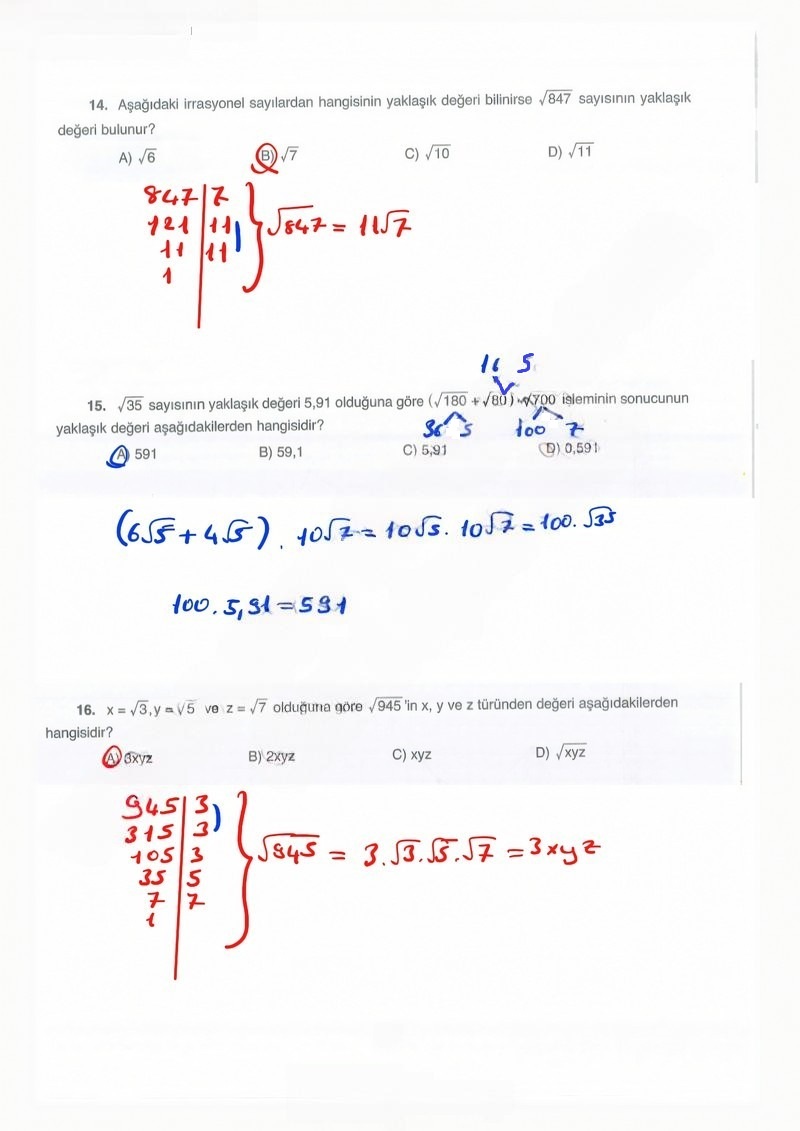 14. Aşağıdaki irrasyonel sayılardan hangisinin yaklaşık değeri bilinirse √847 sayısının yaklaşık
değeri bulunur?
A) √6 B) √7 C) √10 D) √11
847 | 7
121 | 11
11 | 11
1
√847 = 11√7
16 5
15. √35 sayısının yaklaşık değeri 5,91 olduğuna göre (√180 + √80) . √700 işleminin sonucunun
yaklaşık değeri aşağıdakilerden hangisidir?
36 5 100 7
A) 591 B) 59,1 C) 5,91 D) 0,591
(6√5 + 4√5) . 10√7 = 10√5 . 10√7 = 100 . √35
100 . 5,91 = 591
16. x = √3, y = √5 ve z = √7 olduğuna göre √945 'in x, y ve z türünden değeri aşağıdakilerden
hangisidir?
A) 3xyz B) 2xyz C) xyz D) √xyz
945 | 3
315 | 3
105 | 3
35 | 5
7 | 7
1
√945 = 3.√3.√5.√7 = 3xyz